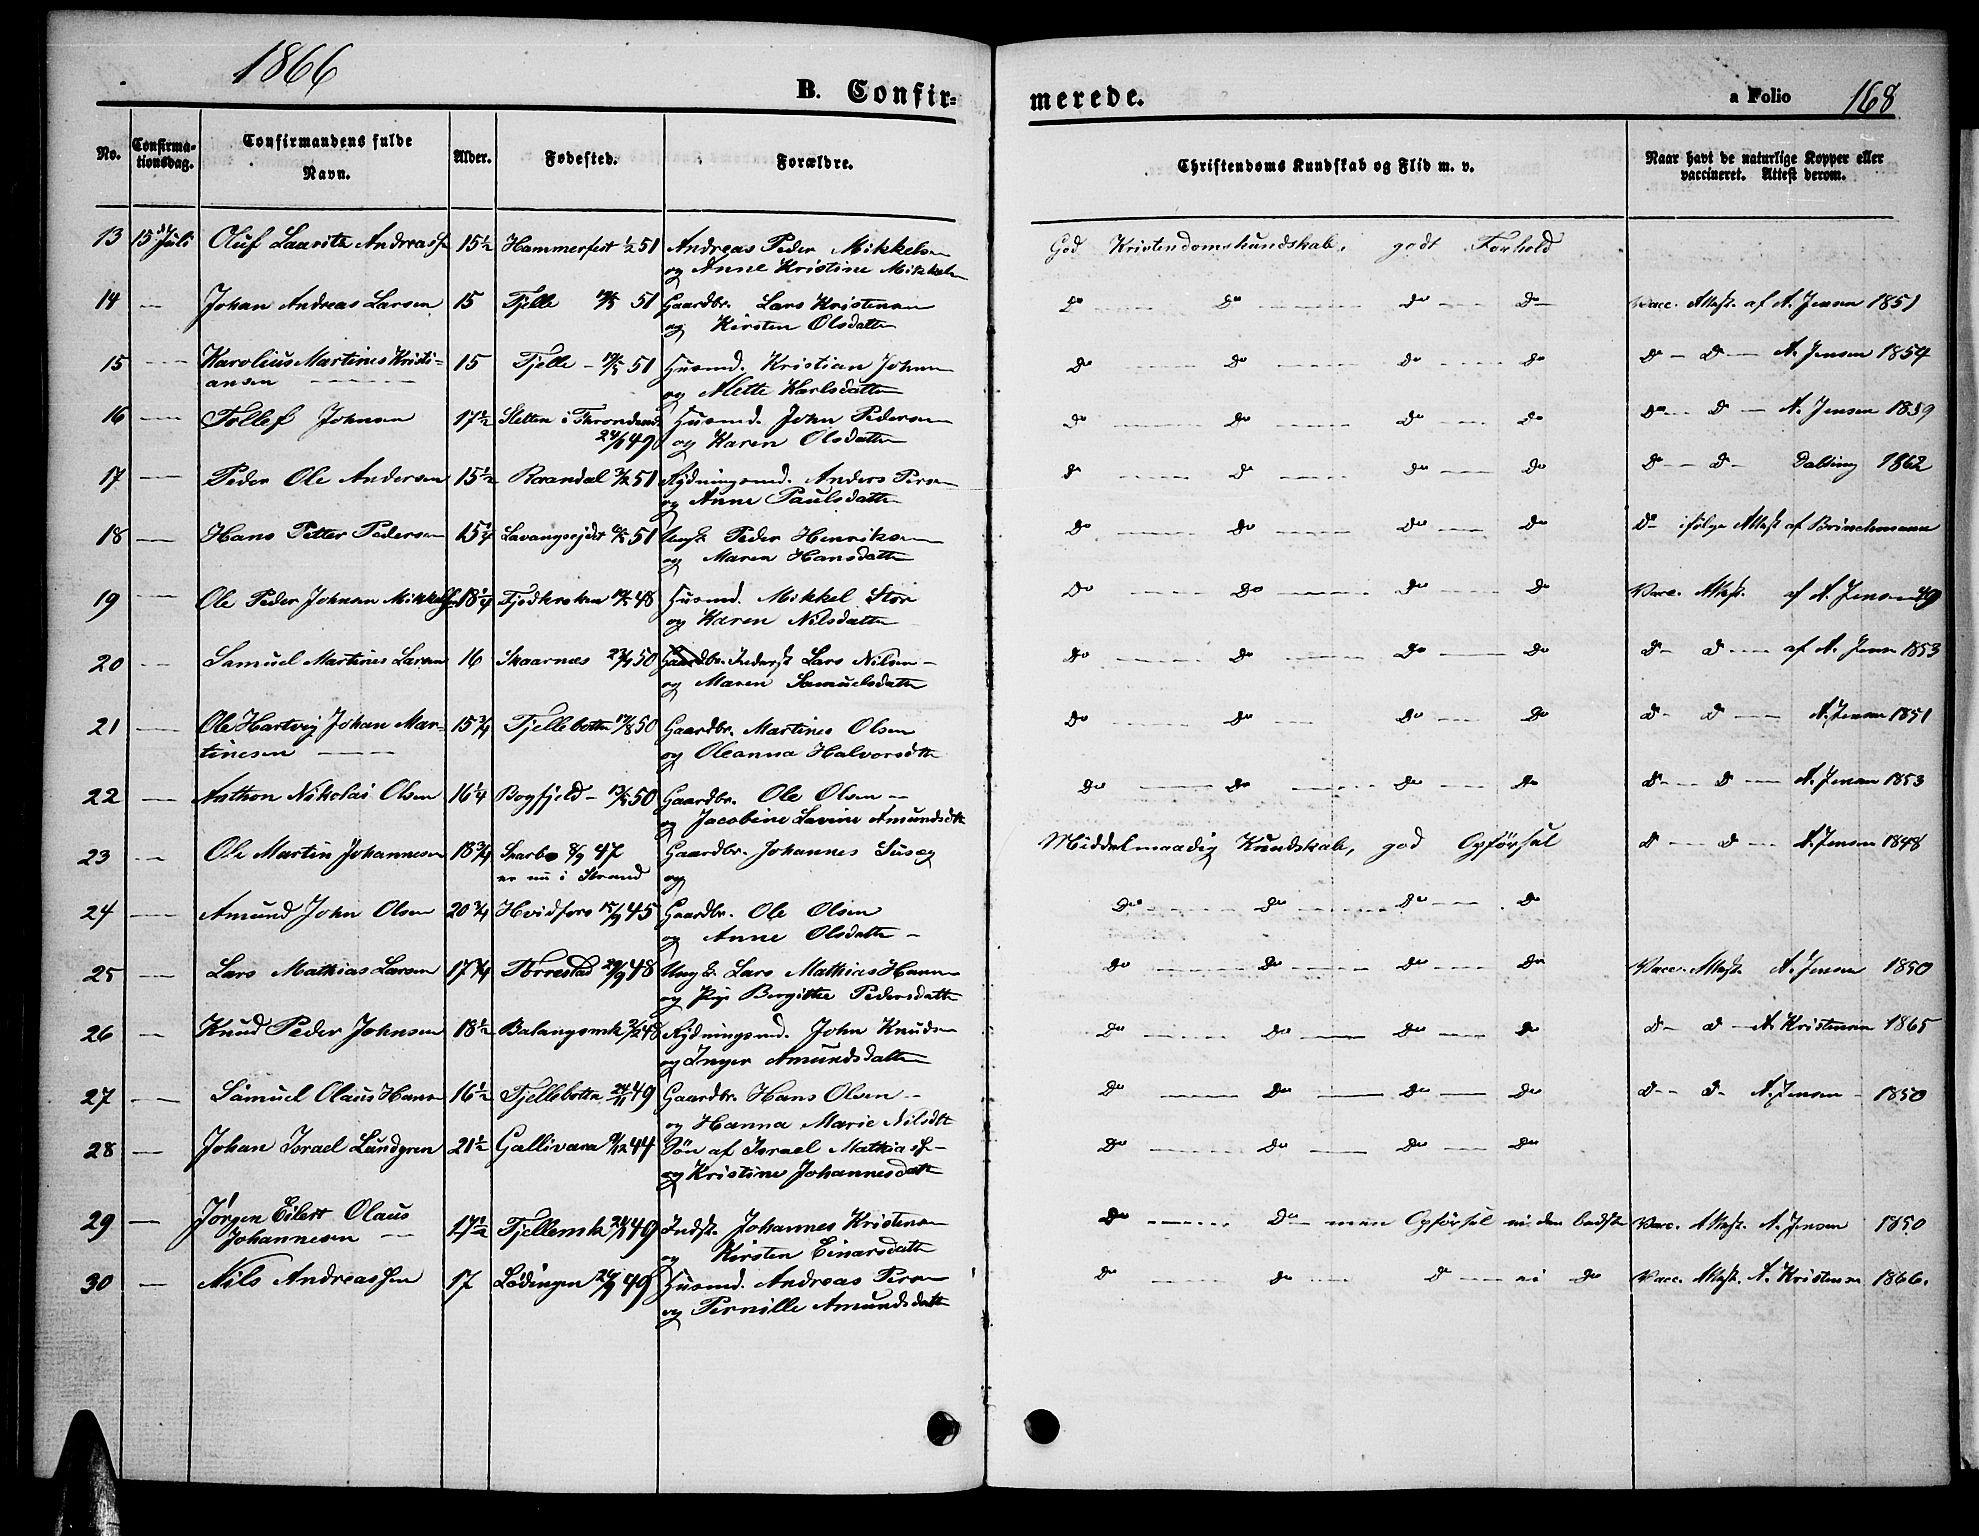 1866
B. Confir=
merede.
a Folio 168
No.
Confirma-
tionsdag.
Confirmandens fulde
Navn.
Alder.
Fødested.
Forældre.
Christendoms Kundskab og Flid m. v.
Naar havt de naturlige Kopper eller
vaccineret. Attest derom.
13 15de Juli Oluf Lauritz Andreass. 15½ Hammerfest 51 Andreas Peder Mikkelsen
og Anne Kristine Mikkelsen
God Kristendomskundskab, godt Forhold
14 — Johan Andreas Larsen 15 Fjelle 51 Gaardbr. Lars Kristensen
og Kirsten Olsdatter
Do — Do — Do — Do Vacc. Attest. af A. Jensen 1851
15 — Karolius Martines Kristi-
ansen — 15 Fjelle — 51 Husmd. Kristian Johnsen
og Mette Karlsdatter
Do — Do — Do — Do D — D — A. Jensen 1854
16 — Tollef Johnsen 17½ Sletten i Throndenæs
49 Husmd. John Pedersen
og Karen Olsdatter
Do — Do — Do — Do Do — D — A. Jensen 1859
17 — Peder Ole Andersen 15½ Raandal 51 Rydningsmd. Anders Persen
og Anne Paulsdatter
Do — Do — Do — Do Do — D — 1862
18 — Hans Petter Pedersen 15¼ Lavangseidet 51 Ungk. Peder Henriksen
og Maren Hansdatter
Do — Do — Do — Do Do ifølge Attest af Brinchmann
19 — Ole Peder Johnsen Mikkelsen 18¼ Fjodkroken 48 Husmd. Mikkel Stor
og Karen Nilsdatter
Do — Do — Do — Do Vacc. Attest. af A. Jensen 49
20 — Samuel Martines Larsen 16 Skaarnæs 50 Inderst Lars Nilsen —
og Maren Samuelsdatter
Do — Do — Do — Do D — D — af A. Jensen 1853
21 — Ole Hartvig Johan Mar-
tinesen — 15¾ Fjellebotten 50 Gaardbr. Martines Olsen
og Oleanna Halvorsdtr
Do — Do — Do — Do D — D — A. Jensen 1851
22 — Anthon Nikolai Olsen 16¼ Bogfjeld — 50 Gaardbr. Ole Olsen —
og Jacobine Lavine Amundsdtr
Do — Do — Do — Do D — D — A. Jensen 1853
23 — Ole Martin Johannesen 18¾ 8/9 47
er nu i Strand Gaardbr. Johannes
og
Middelmaadig Kundskab, god Opførsel D — D — A. Jensen 1848
24 — Amund John Olsen 20¾ Hvidfors 15/9 45 Gaardbr. Ole Olsen
og Anne Olsdatter —
Do — Do — Do — Do
25 — Lars Mathias Larsen 17¾ Torrestad 48 Ungk. Lars Mathias Hansen
og Pige Bergitte Pedersdatter
Do — Do — Do — Do Vacc. Attest A. Jensen 1850
26 — Knud Peder Johnsen 18½ Balangsmk 48 Rydningsmd. John Knudsen
og Inger Amundsdatter
Do — Do — Do — Do D — D — A. Kristensen 1865
27 — Samuel Olaus Hansen 16½ Fjellebotten 24/11 49 Gaardbr. Hans Olsen —
og Hanna Marie Nilsdtr
Do — Do — Do — Do D — D — A. Jensen — 1850
28 — Johan Israel Lundgren 21½ Gallivara 44 Søn af Israel Mathiass. —
og Kristine Johannesdatter
Do — Do — Do — Do
29 — Jørgen Eilert Olaus
Johannesen — 17½ Fjellemk 49 Indst. Johannes Kristensen
og Kirsten Einarsdatter
Do — Do — men Opførsel ei den bedste Vacc. Attest. A. Jensen 1850
30 — Nils Andreassen 17 Lødingen 49 Husmd. Andreas Persen
og Pernille Amundsdatter
Do — Do — D — ei Do Vacc. Attest. A. Kristensen 1866.